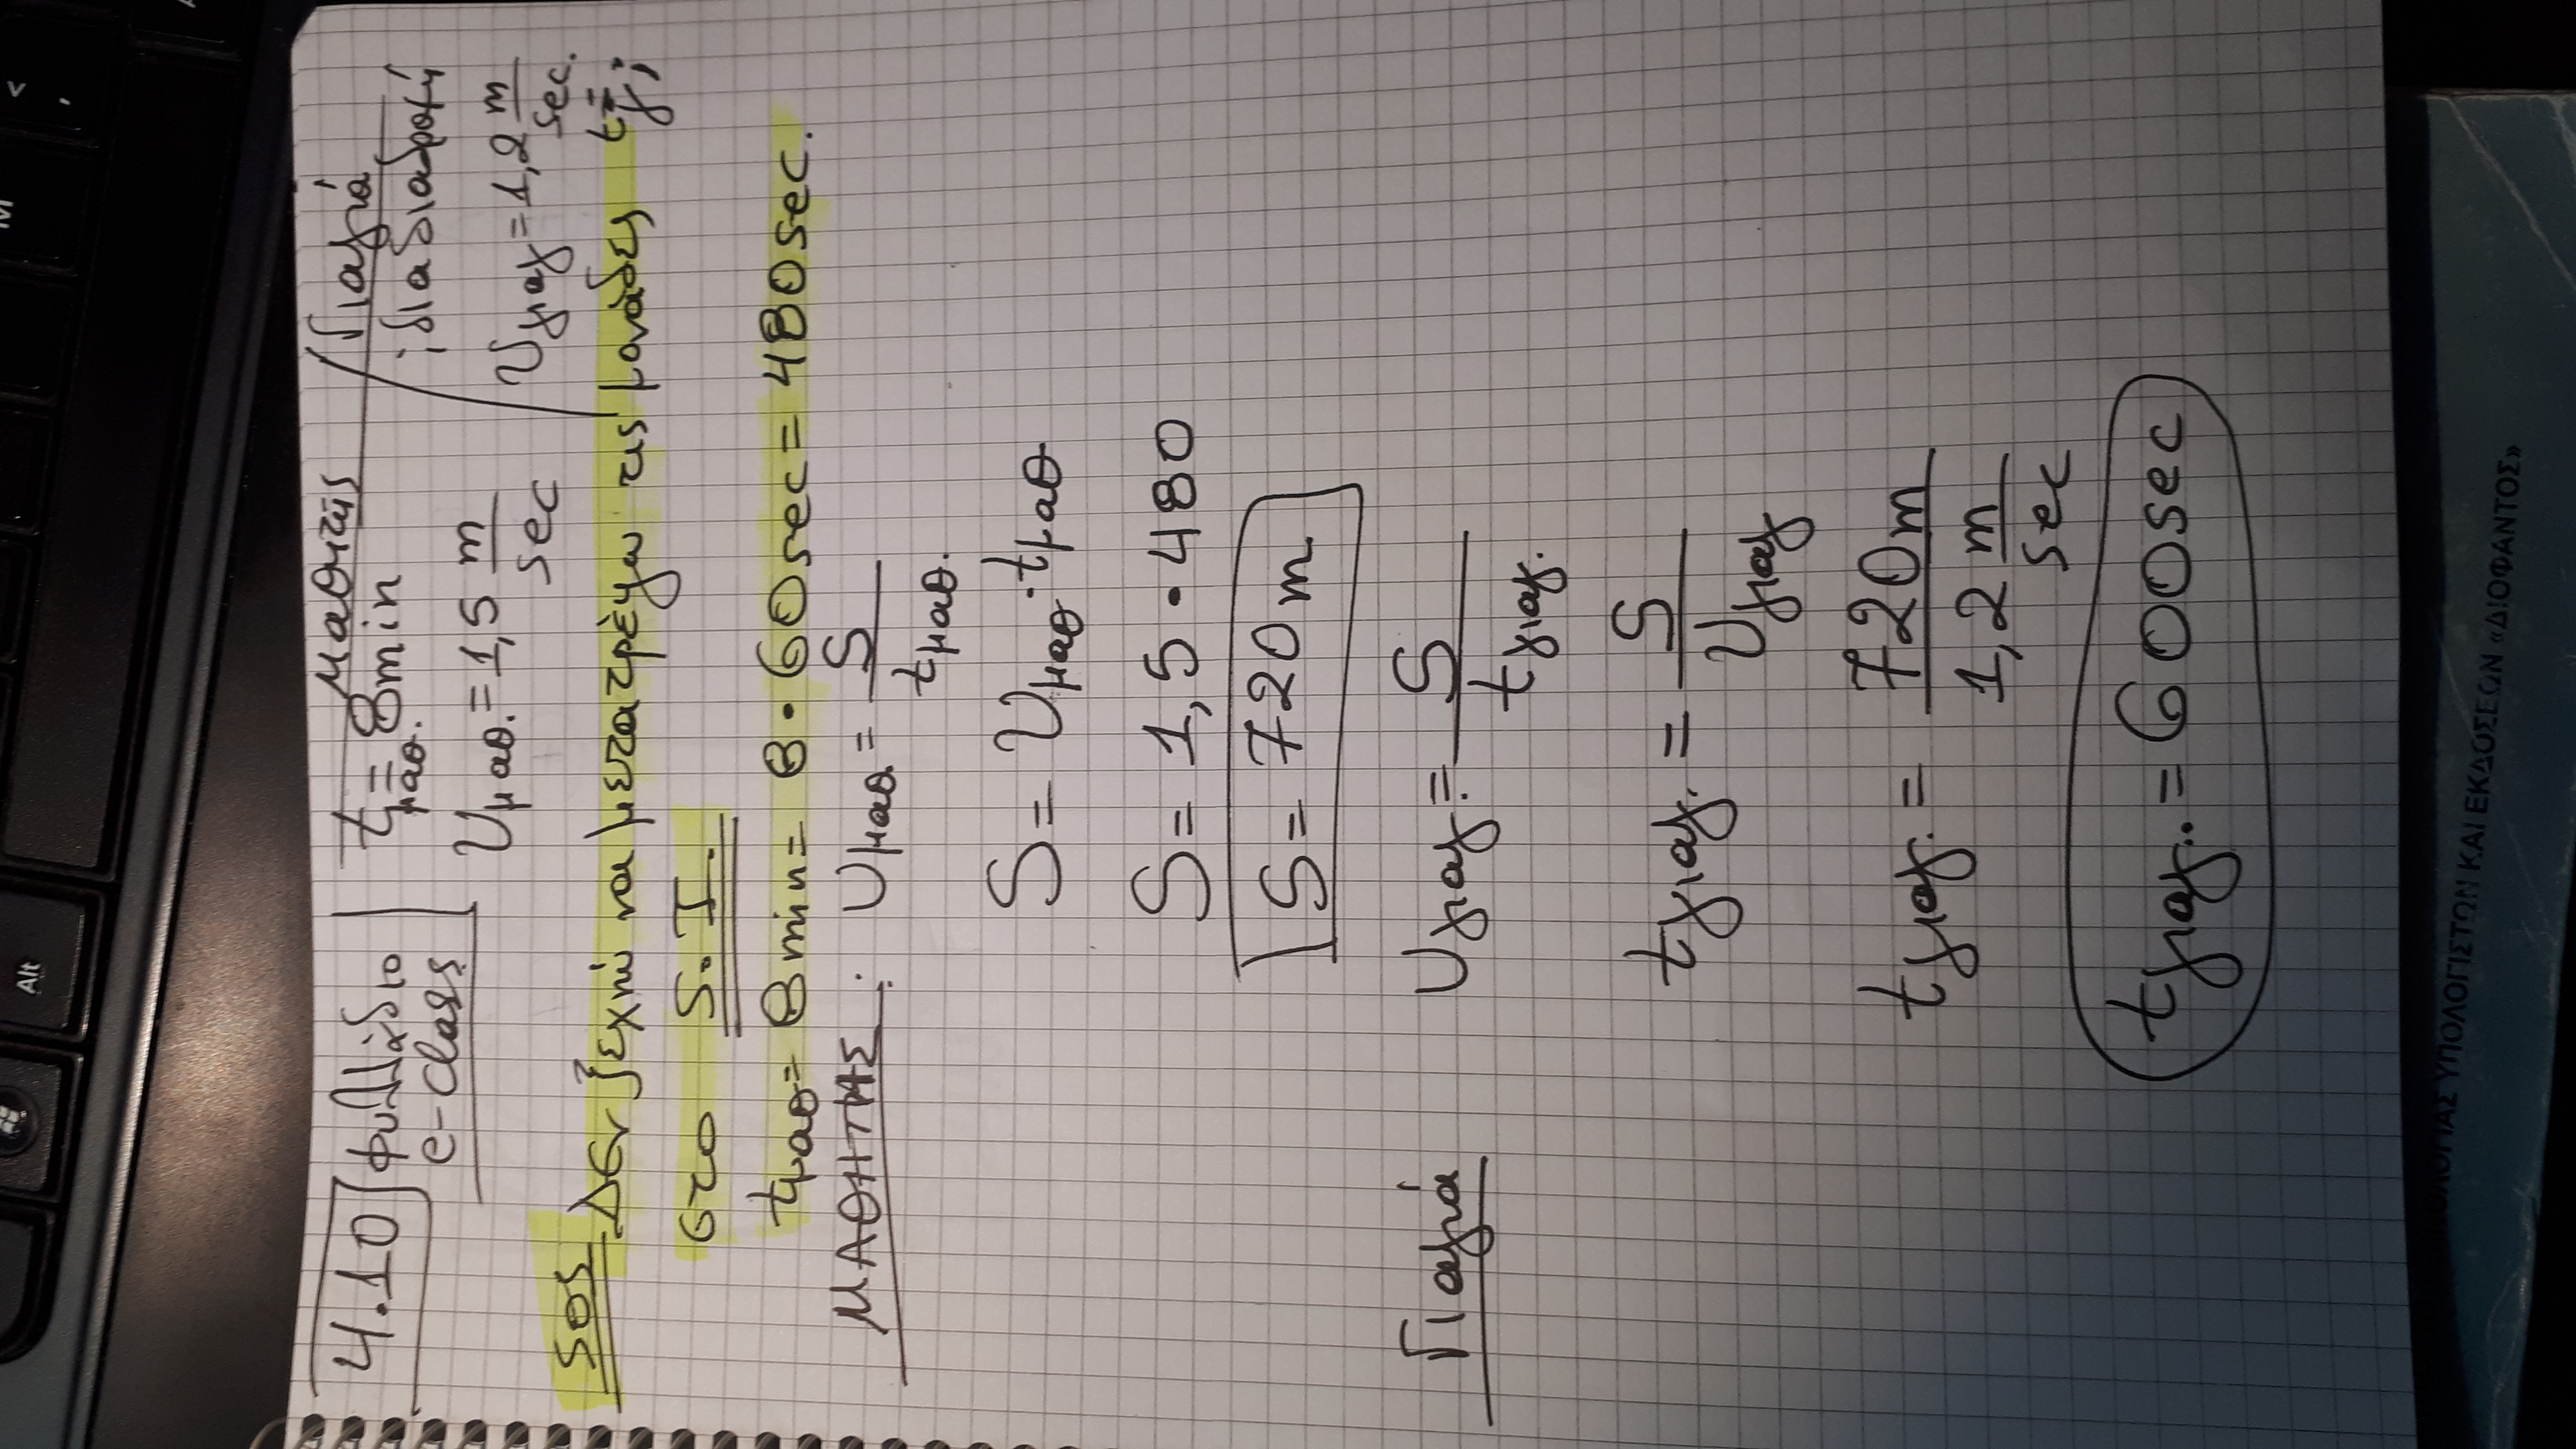 4.10 φυλλάδιο e-class
Μαθητής
t μαθ. = 8min
υ μαθ. = 1,5 m/sec
Γιαγιά
ίδια διαδρομή
υ γιαγ = 1,2 m/sec.
t γ = ;
SOS Δεν ξεχνώ να μετατρέψω τις μονάδες
στο S.I.
t μαθ = 8min = 8·60sec = 480sec.
ΜΑΘΗΤΗΣ: υ μαθ = S / t μαθ.
S = υ μαθ · t μαθ
S = 1,5 · 480
S = 720m
Γιαγιά
υ γιαγ. = S / t γιαγ.
t γιαγ. = S / υ γιαγ
t γιαγ. = 720m / 1,2 m/sec
t γιαγ. = 600sec
Alt
M
ΝΟΛΟΓΙΑΣ ΥΠΟΛΟΓΙΣΤΩΝ ΚΑΙ ΕΚΔΟΣΕΩΝ «ΔΙΟΦΑΝΤΟΣ»